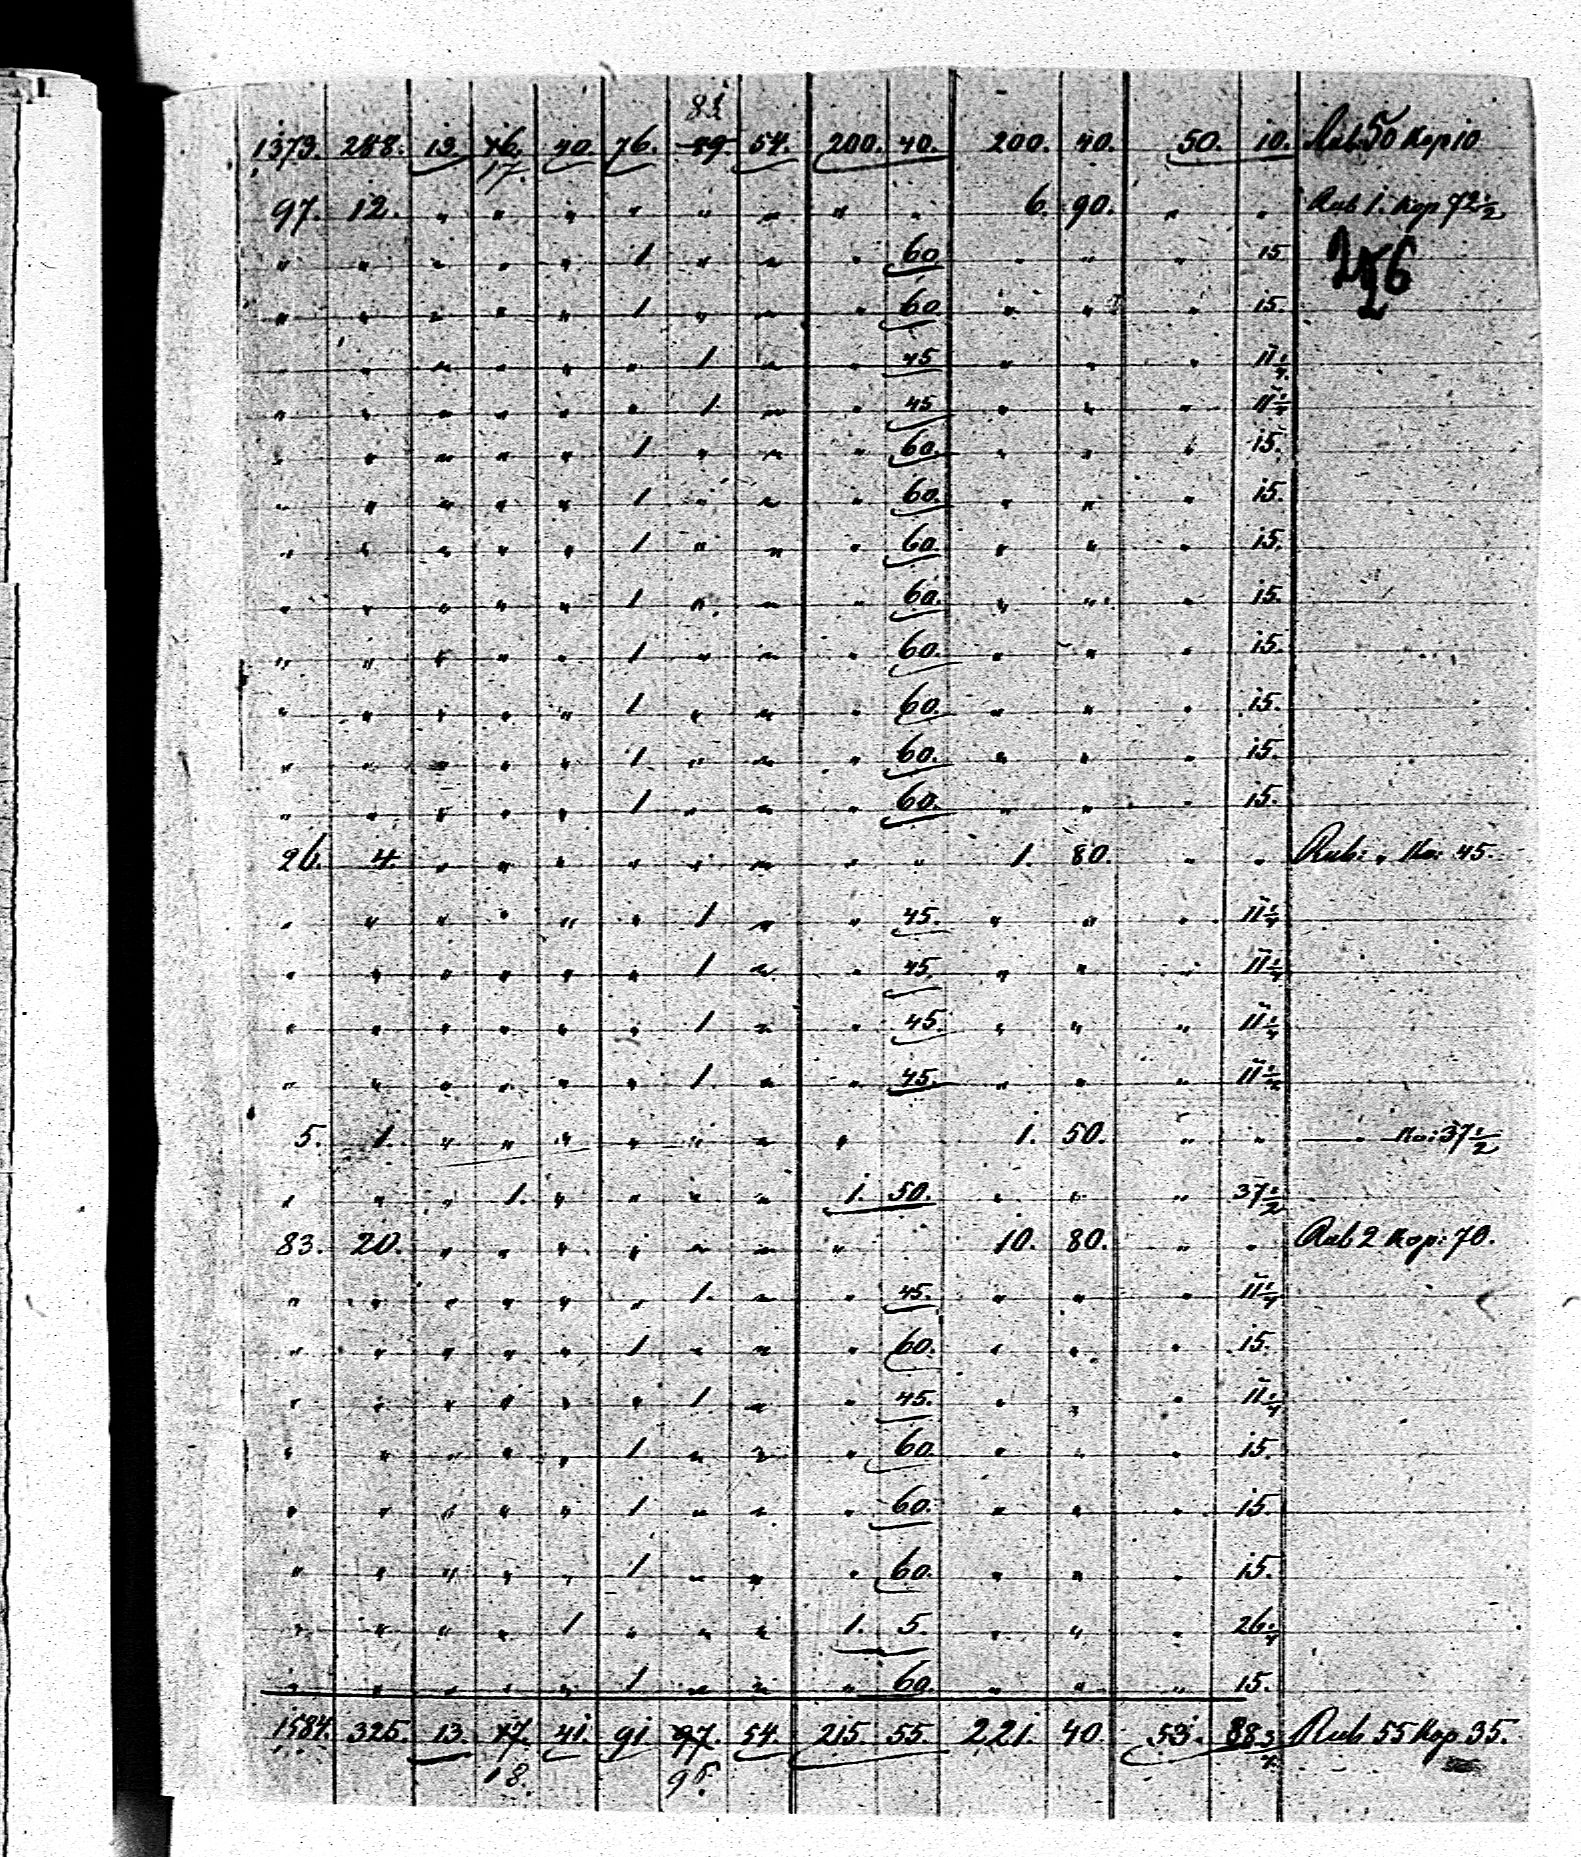 83
1373. 288. 13. 16. 40. 76. 89. 54. 200. 40. 200. 40. 50. 10. Rub 50 Kop 10
17.
97. 12. " " " " " " " " 6. 90. " " Rub 1. Kop 72 1/2
" " " " " 1 " " " 60 " " " 15
" " " " " 1 " " " 60 " " " 15.
" " " " " " 1 " " 45 " " " 11 1/4
" " " " " " 1 " " 45 " " " 11 1/4
" " " " " 1 " " " 60. " " " 15.
" " " " " 1 " " " 60. " " " 15.
" " " " " 1 " " " 60. " " " 15.
" " " " " 1 " " " 60. " " " 15.
" " " " " 1 " " " 60. " " " 15.
" " " " " 1 " " " 60. " " " 15.
" " " " " 1 " " " 60. " " " 15.
" " " " " 1 " " " 60. " " " 15.
26. 4. " " " " " " " " 1. 80. " " Rub: " Ko: 45.
" " " " " " 1 " " 45. " " " 11 1/4
" " " " " " 1 " " 45. " " " 11 1/4
" " " " " " 1 " " 45. " " " 11 1/4
" " " " " " 1. " " 45. " " " 11 1/4
5. 1. " " " " " " " 1. 50. " " — " Ko: 37 1/2
" " " 1. " " " " 1. 50. " " " 37 1/2
83. 20. " " " " " " " 10. 80. " " Rub 2 Kop: 70.
" " " " " " 1. " " 45. " " " 11 1/4
" " " " " 1 " " " 60. " " " 15.
" " " " " " 1. " " 45. " " " 11 1/4
" " " " " 1 " " " 60. " " " 15.
" " " " " 1 " " " 60. " " " 15.
" " " " " 1 " " " 60. " " " 15.
" " " " 1 " " " 1. 5. " " " 26 1/4
" " " " " 1 " " " 60. " " " 15.
1584. 325. 13. 17. 41. 91. 97. 54. 215. 55. 221. 40 53. 88 3/4 Rub 55 Kop 35.
18. 95.